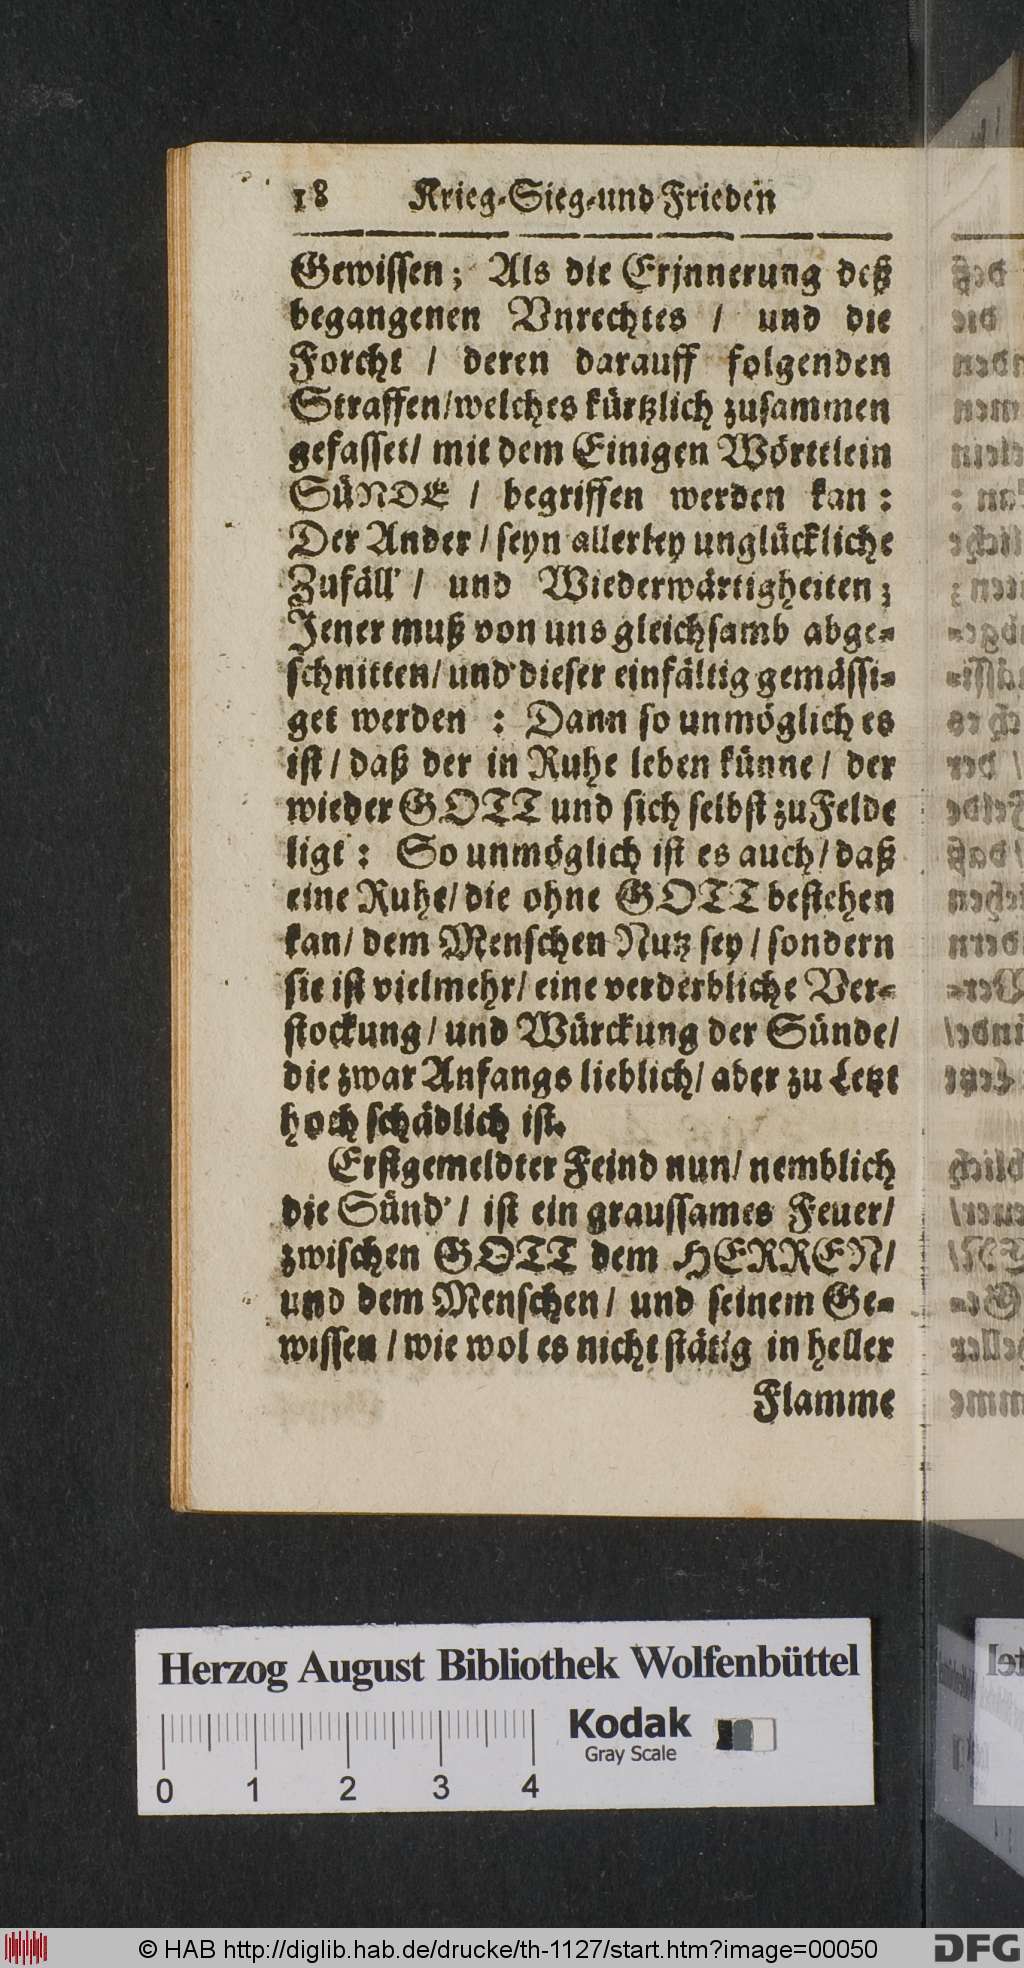 18 Krieg-Sieg-und Frieden
Gewissen; Als die Erjnnerung deß
begangenen Vnrechtes / und die
Forcht / deren darauff folgenden
Straffen/welches kürtzlich zusammen
gefasset/ mit dem Einigen Wörttlein
SÜNDE / begriffen werden kan :
Der Ander / seyn allerley unglückliche
Zufäll' / und Wiederwärtigheiten ;
Jener muß von uns gleichsamb abge-
schnitten/ und dieser einfältig gemässi-
get werden : Dann so unmöglich es
ist / daß der in Ruhe leben künne / der
wieder GOTT und sich selbst zu Felde
ligt : So unmöglich ist es auch / daß
eine Ruhe/ die ohne GOTT bestehen
kan/ dem Menschen Nutz sey / sondern
sie ist vielmehr/ eine verderbliche Ver-
stockung / und Würckung der Sünde/
die zwar Anfangs lieblich/ aber zu Letzt
hoch schädlich ist.
Erstgemeldter Feind nun/ nemblich
die Sünd' / ist ein graussames Feuer/
zwischen GOTT dem HERREN/
und dem Menschen / und seinem Ge-
wissen / wie wol es nicht stätig in heller
Flamme
Herzog August Bibliothek Wolfenbüttel
Kodak
Gray Scale
0 1 2 3 4
© HAB http://diglib.hab.de/drucke/th-1127/start.htm?image=00050
DFG